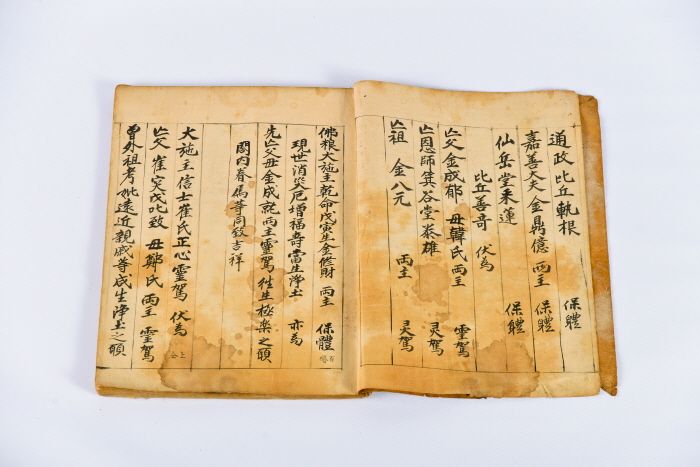 通政 比丘 軌根 保體
嘉善大夫 金鳥億 两主 保體
仙岳堂 禾蓮 保軆
比丘善奇 伏為
亡父 金成郁 母韓氏 两主 靈駕
亡恩師 箕谷堂 泰雄 灵駕
亡祖 金八元 两主 灵駕
佛根大施主 乾命戊寅生 金修財 两主 保體
現世消災厄增福壽當生淨土 亦為
先亡父母金成就兩主靈駕徃生極楽之願
閤内眷属等同致吉祥
大施主信士崔氏正心靈駕 伏為
亡父 崔 戊吐致 母鄭氏 两主 靈駕
曾外祖考妣遠近親戚等咸生淨土之願